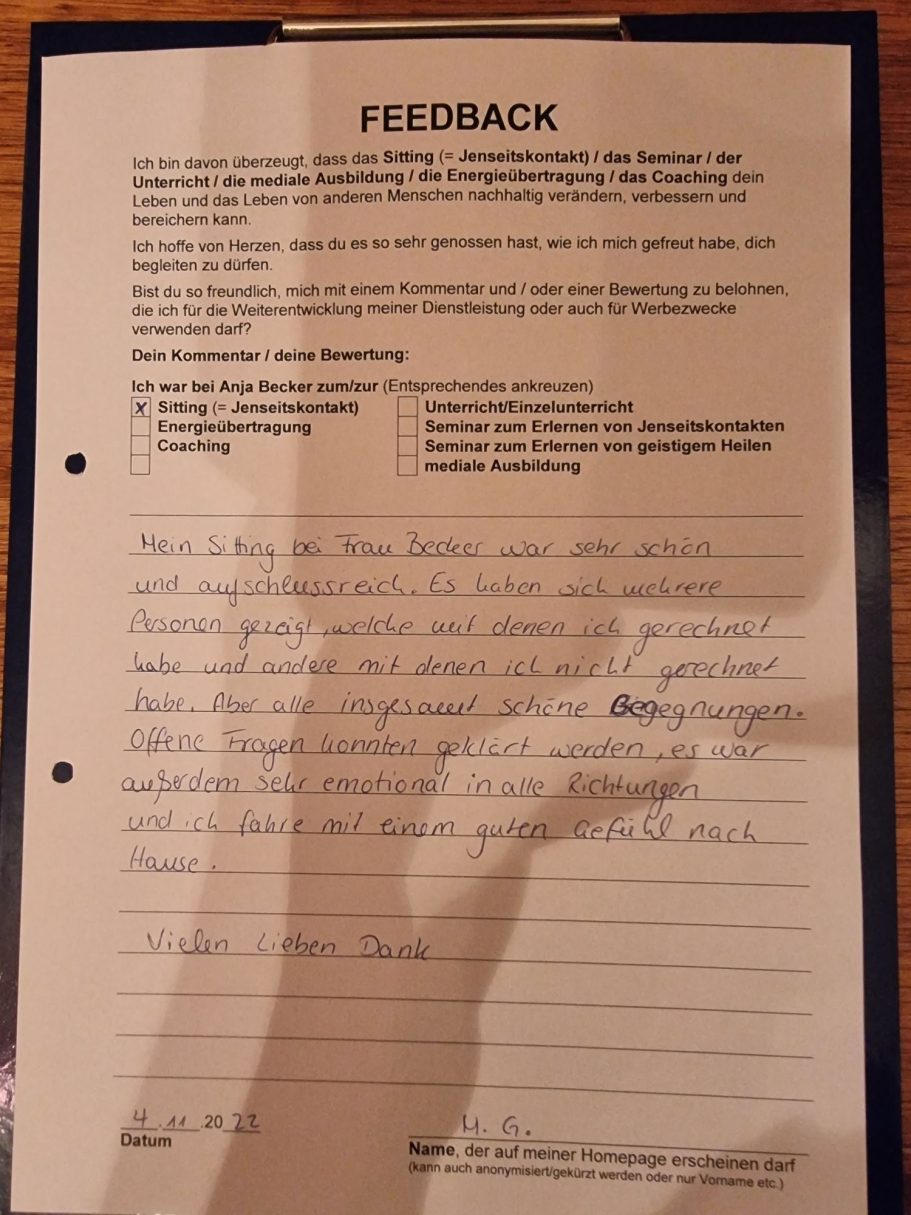 FEEDBACK
Ich bin davon überzeugt, dass das Sitting (= Jenseitskontakt) / das Seminar / der
Unterricht / die mediale Ausbildung / die Energieübertragung / das Coaching dein
Leben und das Leben von anderen Menschen nachhaltig verändern, verbessern und
bereichern kann.
Ich hoffe von Herzen, dass du es so sehr genossen hast, wie ich mich gefreut habe, dich
begleiten zu dürfen.
Bist du so freundlich, mich mit einem Kommentar und / oder einer Bewertung zu belohnen,
die ich für die Weiterentwicklung meiner Dienstleistung oder auch für Werbezwecke
verwenden darf?
Dein Kommentar / deine Bewertung:
Ich war bei Anja Becker zum/zur (Entsprechendes ankreuzen)
X Sitting (= Jenseitskontakt)
Energieübertragung
Coaching
Unterricht/Einzelunterricht
Seminar zum Erlernen von Jenseitskontakten
Seminar zum Erlernen von geistigem Heilen
mediale Ausbildung
Mein Sitting bei Frau Becker war sehr schön
und aufschlussreich. Es haben sich mehrere
Personen gezeigt, welche mit denen ich gerechnet
habe und andere mit denen ich nicht gerechnet
habe. Aber alle insgesamt schöne Begegnungen.
Offene Fragen konnten geklärt werden, es war
außerdem sehr emotional in alle Richtungen
und ich fahre mit einem guten Gefühl nach
Hause.
Vielen Lieben Dank
4.11.2022
Datum
M. G.
Name, der auf meiner Homepage erscheinen darf
(kann auch anonymisiert/gekürzt werden oder nur Vorname etc.)